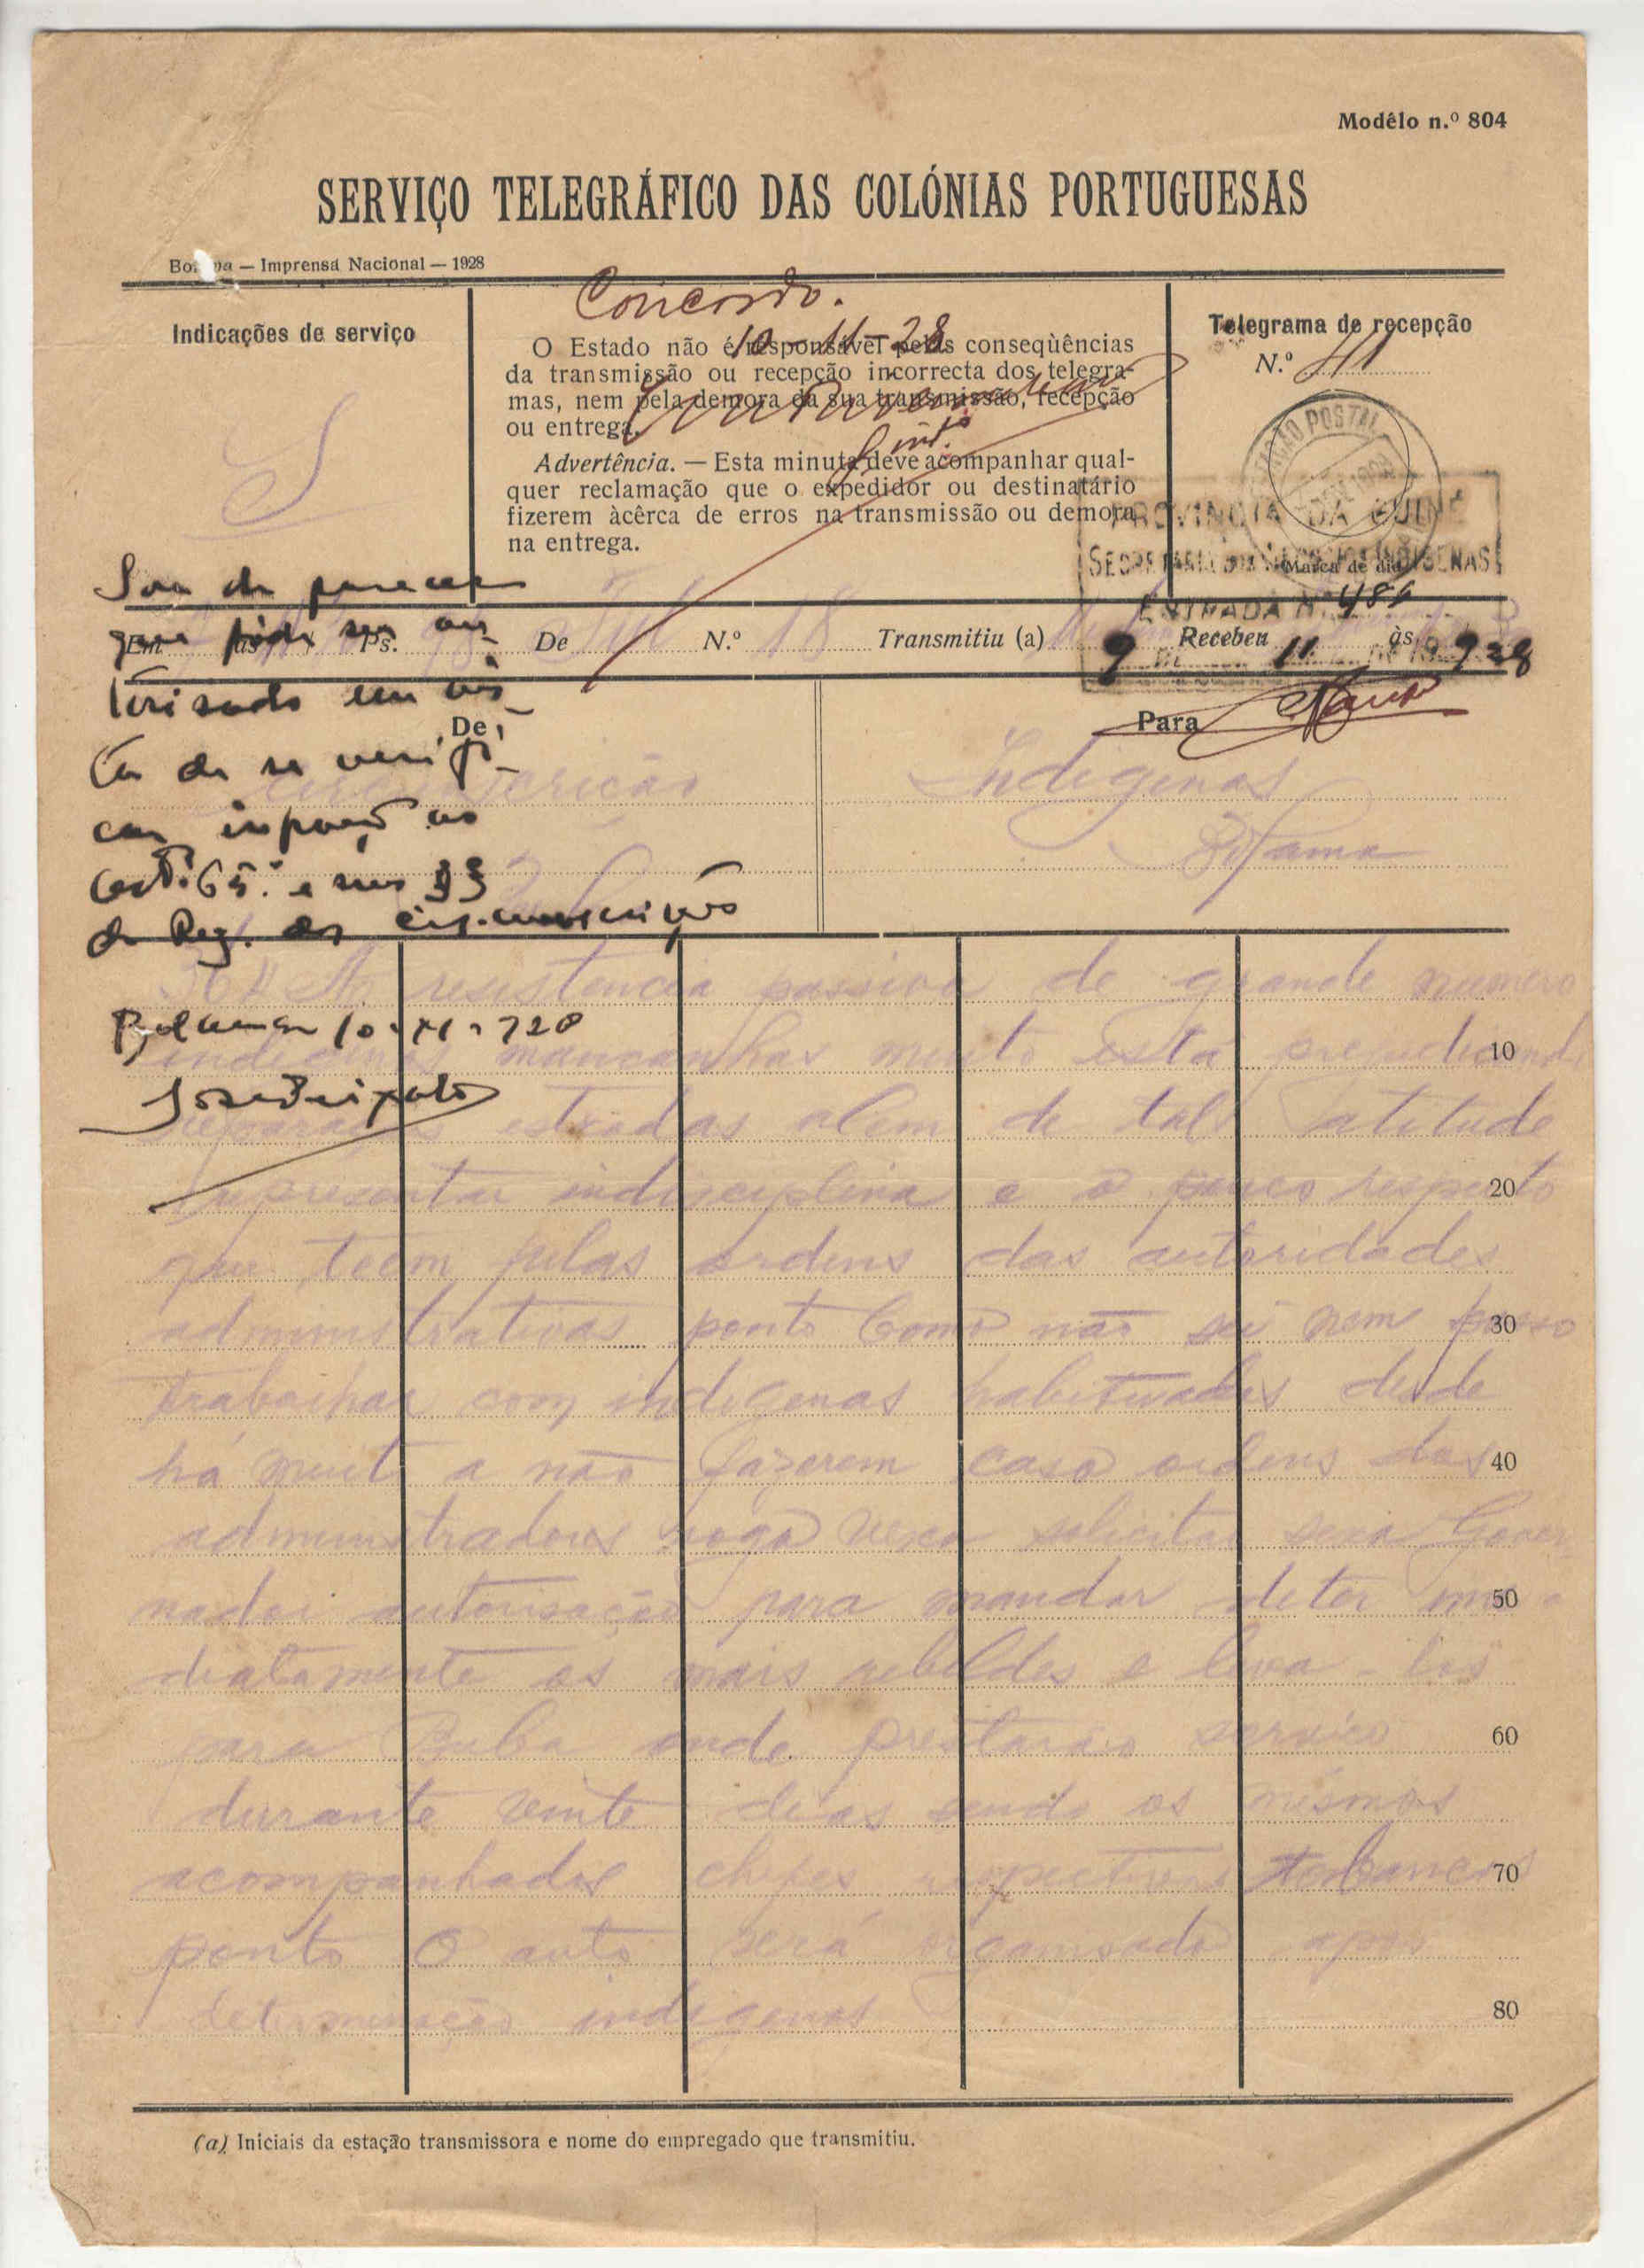 Modêlo n.º 804
SERVIÇO TELEGRÁFICO DAS COLÓNIAS PORTUGUESAS
— Imprensa Nacional — 1928
Concordo.
10-11-28
Indicações de serviço
O Estado não é responsável pelas conseqüências
da transmissão ou recepção incorrecta dos telegra-
mas, nem pela demora da sua transmissão, recepção
ou entrega.
Advertência. — Esta minuta deve acompanhar qual-
quer reclamação que o expedidor ou destinatário
fizerem àcêrca de erros na transmissão ou demora
na entrega.
Telegrama de recepção
N.º
ESTAÇÃO POSTAL
PROVINCIA DA GUINÉ
INDIGENAS
Marca de dia
ENTRADA N.º 486
9 11 928
Sou de parecer
que póde ser au-
torisado em vis-
ta de se verifi-
car
Art.º 65.º e seus §§
do Reg. das circunscrições
Bolama 10-XI-928
Em às Ps. De N.º 18 Transmitiu (a) Recebeu às
De
Para
Indigenas
Bolama
A resistencia passiva de grande numero
indigenas mancanhas muito está prejudicando
10
reparações estradas alem de tal atitude
representar indisciplina e o pouco respeito
20
que teem pelas ordens das autoridades
administrativas ponto Como não sei nem posso
30
trabalhar com indigenas habituados desde
há muito a não fazerem caso ordens dos
40
administradores rogo vexa solicitar sexa Gover
nador autorisação para mandar deter ime
50
diatamente os mais rebeldes e leva-los
para Buba onde prestarão serviço
60
durante vinte dias sendo os mesmos
acompanhados chefes respectivas tabancas
70
ponto O auto será organisado apos
determinação indigenas
80
(a) Iniciais da estação transmissora e nome do empregado que transmitiu.